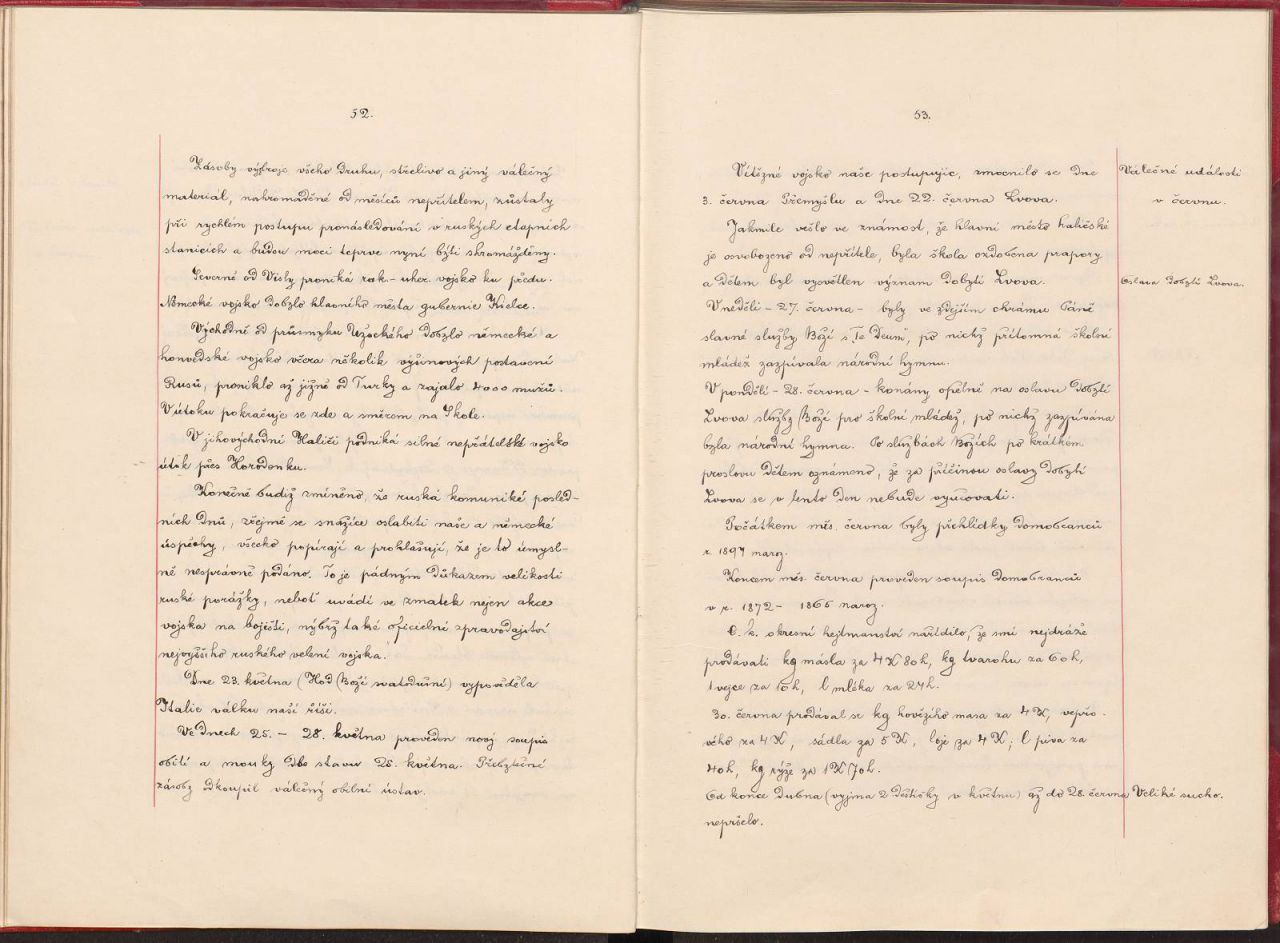 52.
Zásoby výzbroje všeho druhu, střelivo a jiný válečný
materiál, nahromaděné od měsíců nepřítelem, zůstaly
při rychlém postupu pronásledování v ruských etapních
stanicích a budou moci teprve nyní býti shromážděny.
Severně od Visly proniká rak.-uher. vojsko ku předu.
Německé vojsko dobylo hlavního města gubernie Kielce.
Východně od průsmyku Užockého dobylo německé a
honvédské vojsko včera několik výšinových postavení
Rusů, proniklo až jižně od Turky a zajalo 4000 mužů.
V útoku pokračuje se zde a směrem na Skole.
V jihovýchodní Haliči podniká silné nepřátelské vojsko
útok přes Horodenku.
Konečně budiž zmíněno, že ruská komuniké posled-
ních dnů, zřejmě se snažíce oslabiti naše a německé
úspěchy, všecko popírají a prohlašují, že je to úmysl-
ně nesprávně podáno. To je pádným důkazem velikosti
ruské porážky, neboť uvádí ve zmatek nejen akce
vojska na bojišti, nýbrž také oficielní zpravodajství
nejvyššího ruského velení vojska.
Dne 23. května (Hod Boží svatodušní) vypověděla
Italie válku naší říši.
Ve dnech 25. – 28. května proveden nový soupis
obilí a mouky dle stavu 25. května. Přebytečné
zásoby skoupil válečný obilní ústav.
53.
Vítězné vojsko naše postupujíc, zmocnilo se dne
3. června Přemyšlu a dne 22. června Lvova.
Jakmile vešlo ve známost, že hlavní město haličské
je osvobozeno od nepřítele, byla škola ozdobena prapory
a dětem byl vysvětlen význam dobytí Lvova.
V neděli – 27. června – byly ve zdejším chrámu Páně
slavné služby Boží s „Te Deum“, po nichž přítomná školní
mládež zazpívala národní hymnu.
V pondělí – 28. června – konány opětně na oslavu dobytí
Lvova služby Boží pro školní mládež, po nichž zazpívána
byla národní hymna. Po službách Božích po krátkém
proslovu dětem oznámeno, že za příčinou oslavy dobytí
Lvova se v tento den nebude vyučovati.
Počátkem měs. června byly přehlídky domobranců
r. 1897 naroz.
Koncem měs. června proveden soupis domobranců
v r. 1872 – 1865 naroz.
C. k. okresní hejtmanství nařídilo, že smí nejdráže
prodávati kg másla za 4 K 80 h, kg tvarohu za 60 h,
1 vejce za 10 h, l mléka za 24 h.
30. června prodával se kg hovězího masa za 4 K, vepřo-
vého za 4 K, sádla za 5 K, loje za 4 K; l piva za
40 h, kg rýže za 1 K 70 h.
Od konce dubna (vyjma 2 deštíčky v květnu) až do 28. června
nepršelo.
Válečné události
v červnu.
Oslava dobytí Lvova.
Veliké sucho.